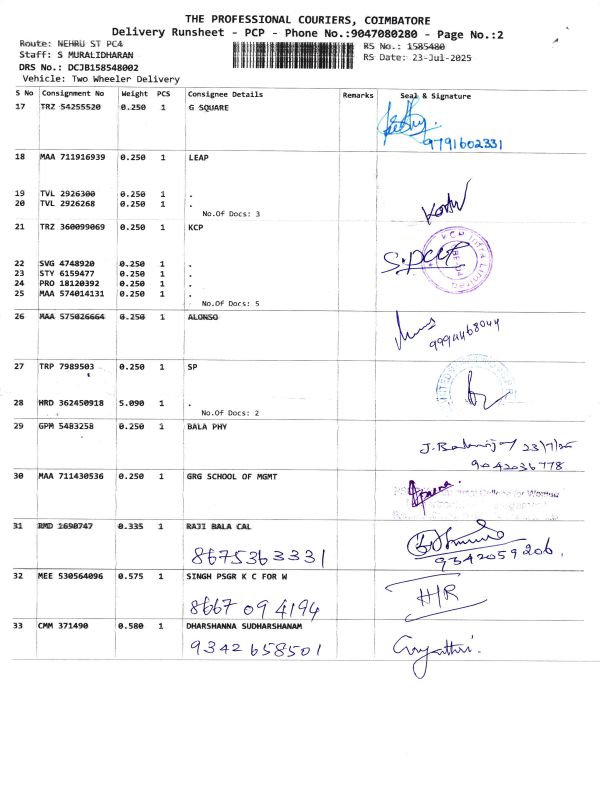 THE PROFESSIONAL COURIERS, COIMBATORE
Delivery Runsheet - PCP - Phone No.:9047080280 - Page No.:2
Route: NEHRU ST PC4 RS No.: 1585480
Staff: S MURALIDHARAN RS Date: 23-Jul-2025
DRS No.: DCJB158548002
Vehicle: Two Wheeler Delivery
S No Consignment No Weight PCS Consignee Details Remarks Seal & Signature
17 TRZ 54255520 0.250 1 G SQUARE
9791602331
18 MAA 711916939 0.250 1 LEAP
19 TVL 2926300 0.250 1 .
20 TVL 2926268 0.250 1 .
No.Of Docs: 3
21 TRZ 360099069 0.250 1 KCP
KCP Infra Limited
22 SVG 4748920 0.250 1 .
23 STY 6159477 0.250 1 .
24 PRO 18120392 0.250 1 .
25 MAA 574014131 0.250 1 .
No.Of Docs: 5
26 MAA 575026664 0.250 1 ALONSO
9994468044
27 TRP 7989503 0.250 1 SP
28 HRD 362450918 5.090 1 .
No.Of Docs: 2
29 GPM 5483258 0.250 1 BALA PHY
23/7/25
9042036778
30 MAA 711430536 0.250 1 GRG SCHOOL OF MGMT
College for Women
31 RMD 1690747 0.335 1 RAJI BALA CAL
8675363331 9342059206.
32 MEE 530564096 0.575 1 SINGH PSGR K C FOR W
8667 09 4194 H/R
33 CMM 371490 0.580 1 DHARSHANNA SUDHARSHANAM
9342658501 Gayathri.